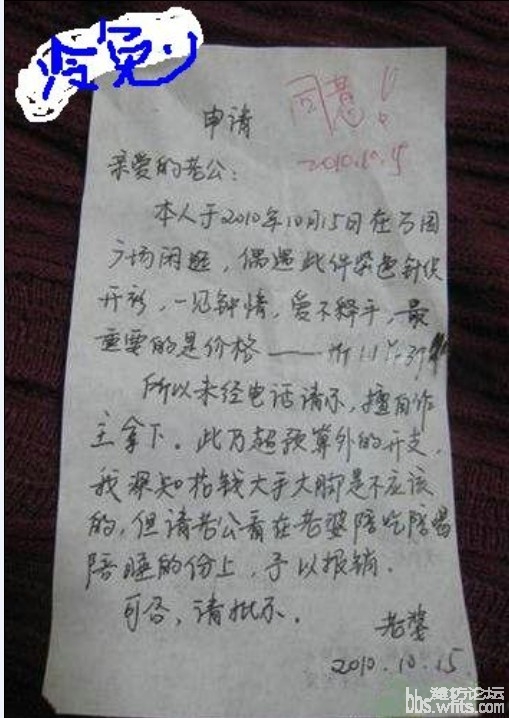 同意!
2010.10.15
申请
亲爱的老公:
本人于2010年10月15日在
广场闲逛,偶遇此件染色针织
开衫,一见钟情,爱不释手,最
重要的是价格——
所以未经电话请示,擅自作
主拿下。此乃超预算外的开支,
我深知花钱大手大脚是不应该
的,但请老公看在老婆陪吃陪喝
陪睡的份上,予以报销.
可否,请批示。
老婆
2010.10.15
潍坊论坛
bbs.wfits.com